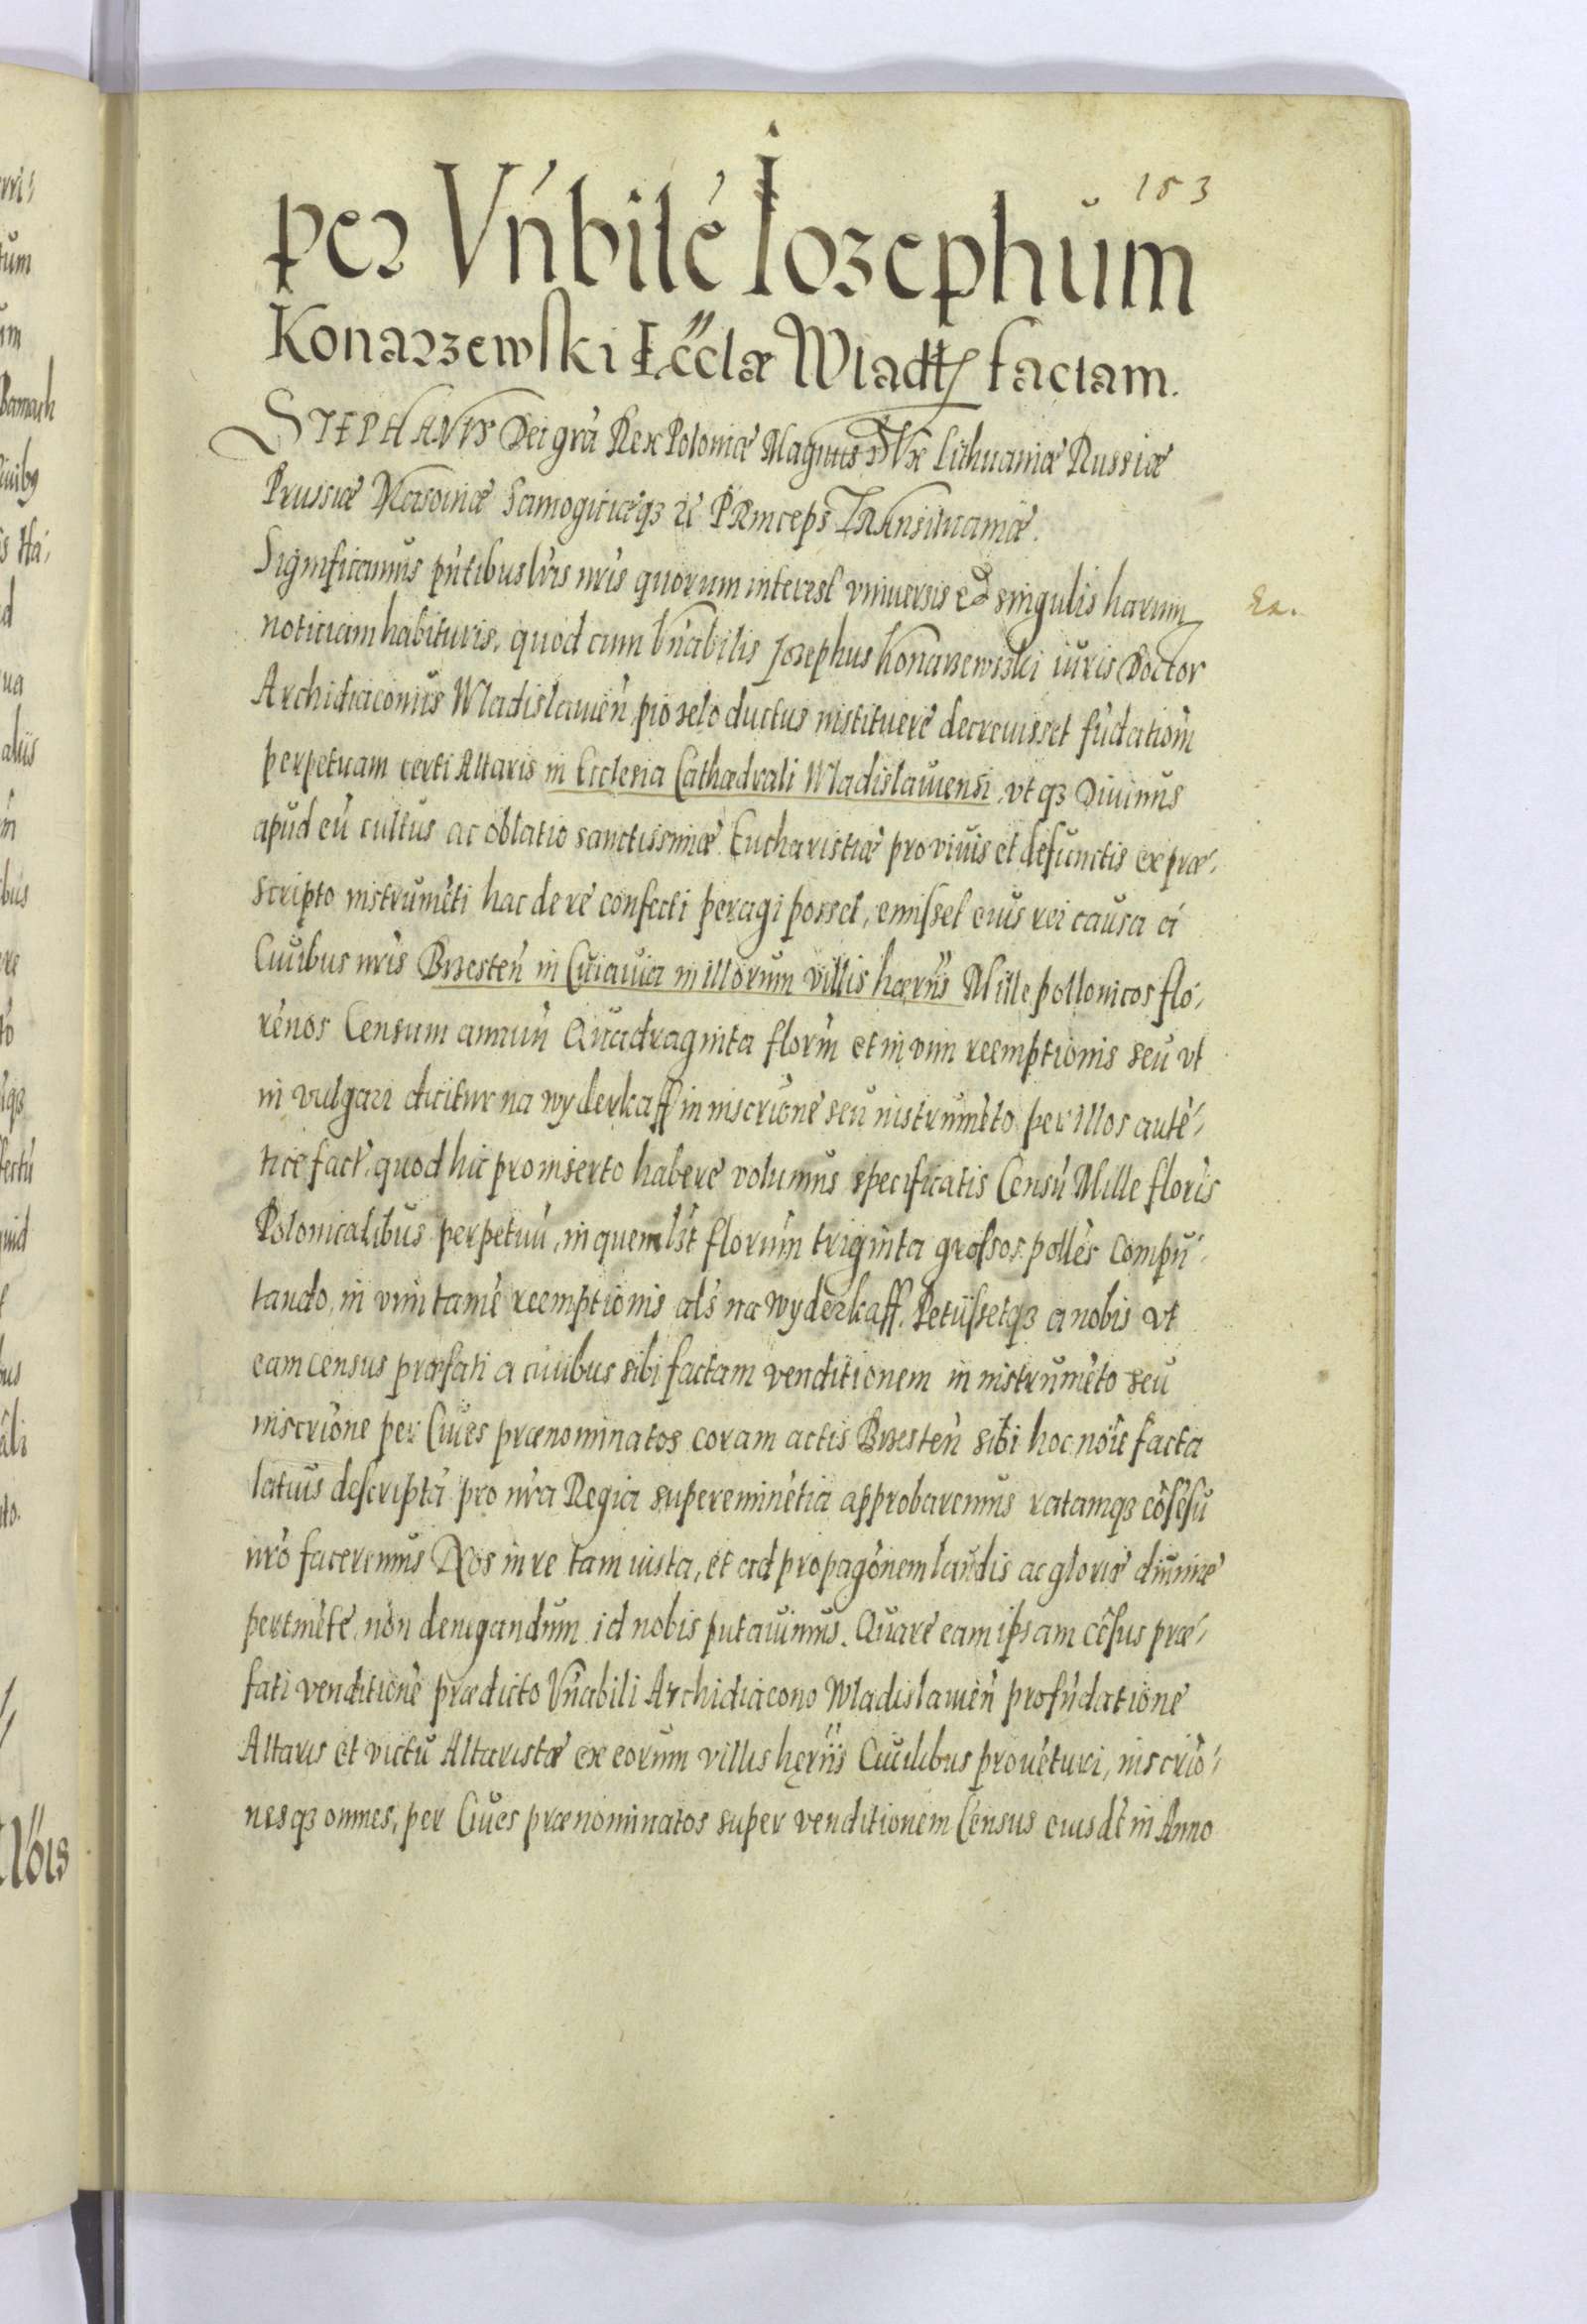 183
per Vńbilé Iozephum
Konarzewski Eccłæ Wladł factam.
STEPHANVS Dei grã Rex Poloniæ Magnus DVx Lithuaniæ Russiæ
Prussiæ Masoviæ Samogitiæqȝ et PRinceps TRAnsilvaniæ.
Significamus pñtibus lris nris quorum interest vniuersis et singulis harum
noticiam habituris, quod cum Vñabilis Jozephus Konarzewski iuris Doctor
Archidiaconus Wladislauień pio zelo ductus instituere decreuisset fũdatioñ
perpetuam certi Altaris in Ecclesia Cathædrali Wladislauiensi, vt qȝ Diuinus
apud eũ cultus ac oblatio sanctissimæ Eucharistiæ pro viuis et defunctis ex præ-
scripto instrumẽti hac de re confecti peragi posset, emisset eius rei causa a
Ciuibus nris Brzesteń in Cuiauia in illorum villis hæriis Mille pollonicos flo-
renos Censum annuũ Quadraginta floriń et in vim reemptionis seu vt
in vulgari dicitur na wyderkaff in inscriõne seu instrumẽto per illos autẽ-
tice fact. quod hic pro inserto habere volumus specificatis Censũ Mille floris
Polonicalibus perpetuũ, in quemlȝt florum triginta grossos polles compu-
tando, in vim tamẽ reemptionis als na wyderkaff. Petiissetqȝ a nobis vt
eam census præfati a ciuibus sibi factam venditionem in instrumẽto seu
inscriõne per Ciues prænominatos coram actis Brzesteń sibi hoc nõie facta
latius descriptã pro nra Regia supereminẽtia approbaremus ratamqȝ cõsẽsu
nro faceremus Nos in re tam iusta, et ad propagõnem laudis ac gloriæ diuinæ
pertinẽte, non denegandum id nobis putauimus. Quare eam ipsam cẽsus præ-
fati venditionẽ prædicto Vñabili Archidiacono Wladislauień pro fũdatione
Altaris et victũ Altaristæ ex eorum villis hęriis Ciuilibus prouẽturi, inscriõ-
nesqȝ omnes, per Ciues prænominatos super venditionem Census eiusdẽ in Anno